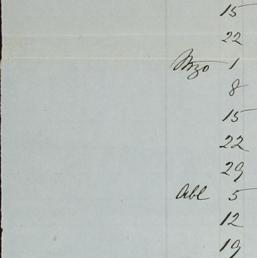 15
22
Mzo 1
8
15
22
29
Abl 5
12
19